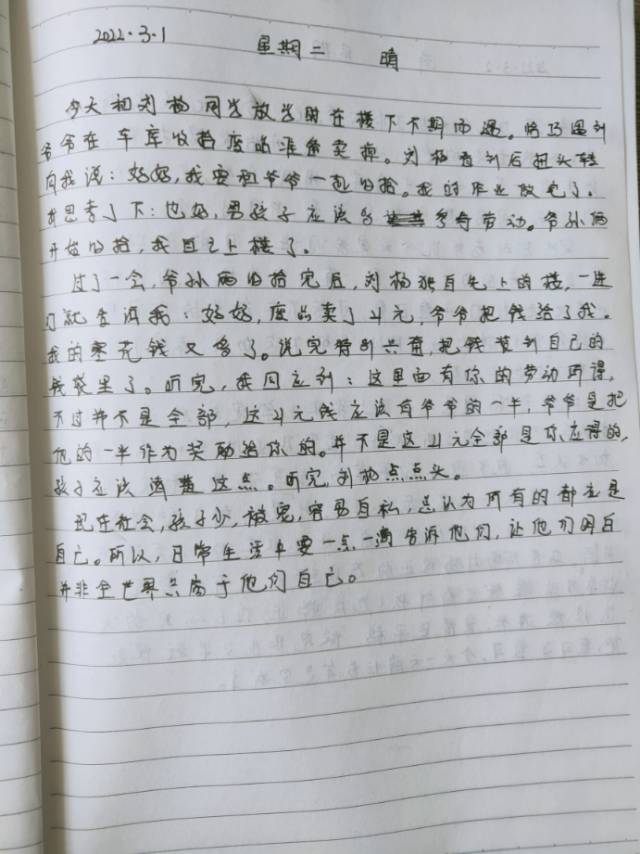 2022.3.1 星期二 晴
今天和刘杨同学放学时在楼下不期而遇。恰巧遇到
爷爷在车库收拾废品准备卖掉。刘杨看到后扭头转
向我说：妈妈，我要和爷爷一起收拾。我的作业做完了。
我思考了下：也好，男孩子应该多参与劳动。爷孙俩
开始收拾，我自己上楼了。
过了一会，爷孙俩收拾完后，刘杨独自先上的楼，一进
门就告诉我：妈妈，废品卖了4元，爷爷把钱给了我。
我的零花钱又多了。说完特别兴奋，把钱装到自己的
钱袋里了。听完，我回应到：这里面有你的劳动所得，
不过并不是全部，这4元钱应该有爷爷的一半，爷爷是把
他的一半作为奖励给你的。并不是这4元全部是你应得的，
孩子应该清楚这点。听完刘杨点点头。
现在社会，孩子少，被宠，容易自私，总认为所有的都是
自己。所以，日常生活中要一点一滴告诉他们，让他们明白
并非全世界只属于他们自己。